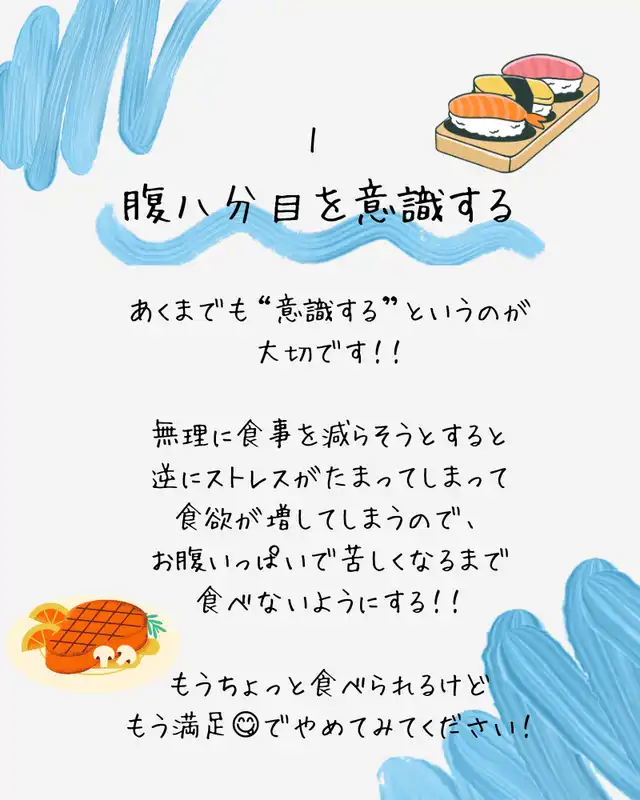 1
腹八分目を意識する
あくまでも“意識する”というのが
大切です!!
無理に食事を減らそうとすると
逆にストレスがたまってしまって
食欲が増してしまうので、
お腹いっぱいで苦しくなるまで
食べないようにする!!
もうちょっと食べられるけど
もう満足😋でやめてみてください!